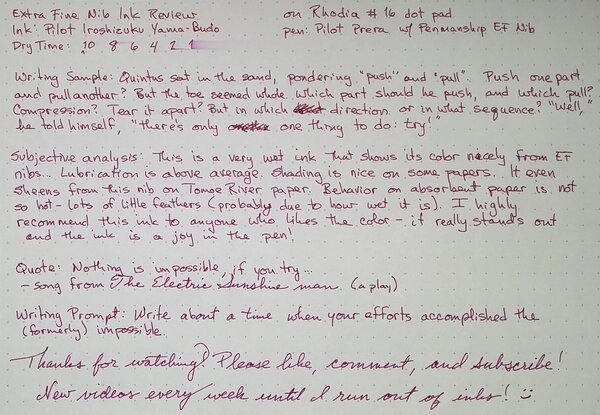 Extra Fine Nib Ink Review on Rhodia #16 dot pad
Ink: Pilot Iroshizuku Yama-Budo pen: Pilot Prera w/ Penmanship EF Nib
Dry Time: 10 8 6 4 2 1
Writing Sample: Quintus sat in the sand, pondering "push" and "pull". Push one part
and pull another? But the toe seemed whole. Which part should he push, and which pull?
Compression? Tear it apart? But in which direction or in what sequence? "Well,"
he told himself, "there's only one thing to do: try!"
Subjective analysis: This is a very wet ink that shows its color nicely from EF
nibs... Lubrication is above average. Shading is nice on some papers. It even
sheens from this nib on Tomoe River paper. Behavior on absorbent paper is not
so hot - lots of little feathers (probably due to how wet it is). I highly
recommend this ink to anyone who likes the color - it really stands out
and the ink is a joy in the pen!
Quote: Nothing is impossible, if you try...
- song from The Electric Sunshine man. (a play)
Writing Prompt: Write about a time when your efforts accomplished the
(formerly) impossible.
Thanks for watching! Please like, comment, and subscribe!
New videos every week until I run out of inks! :)